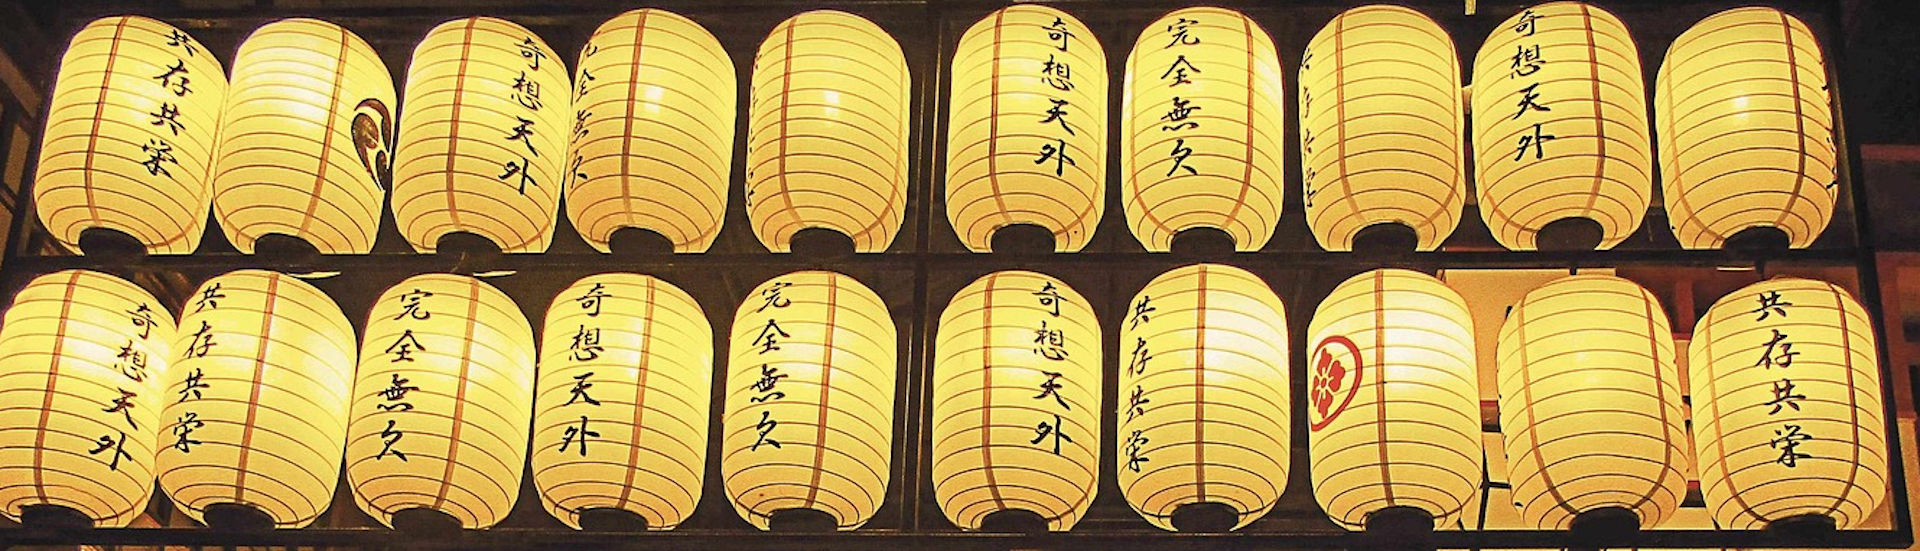 共存共栄
奇想天外
完全無欠
奇想天外
完全無欠
共存共栄
奇想天外
奇想天外
共存共栄
完全無欠
奇想天外
完全無欠
奇想天外
共存共栄
共存共栄